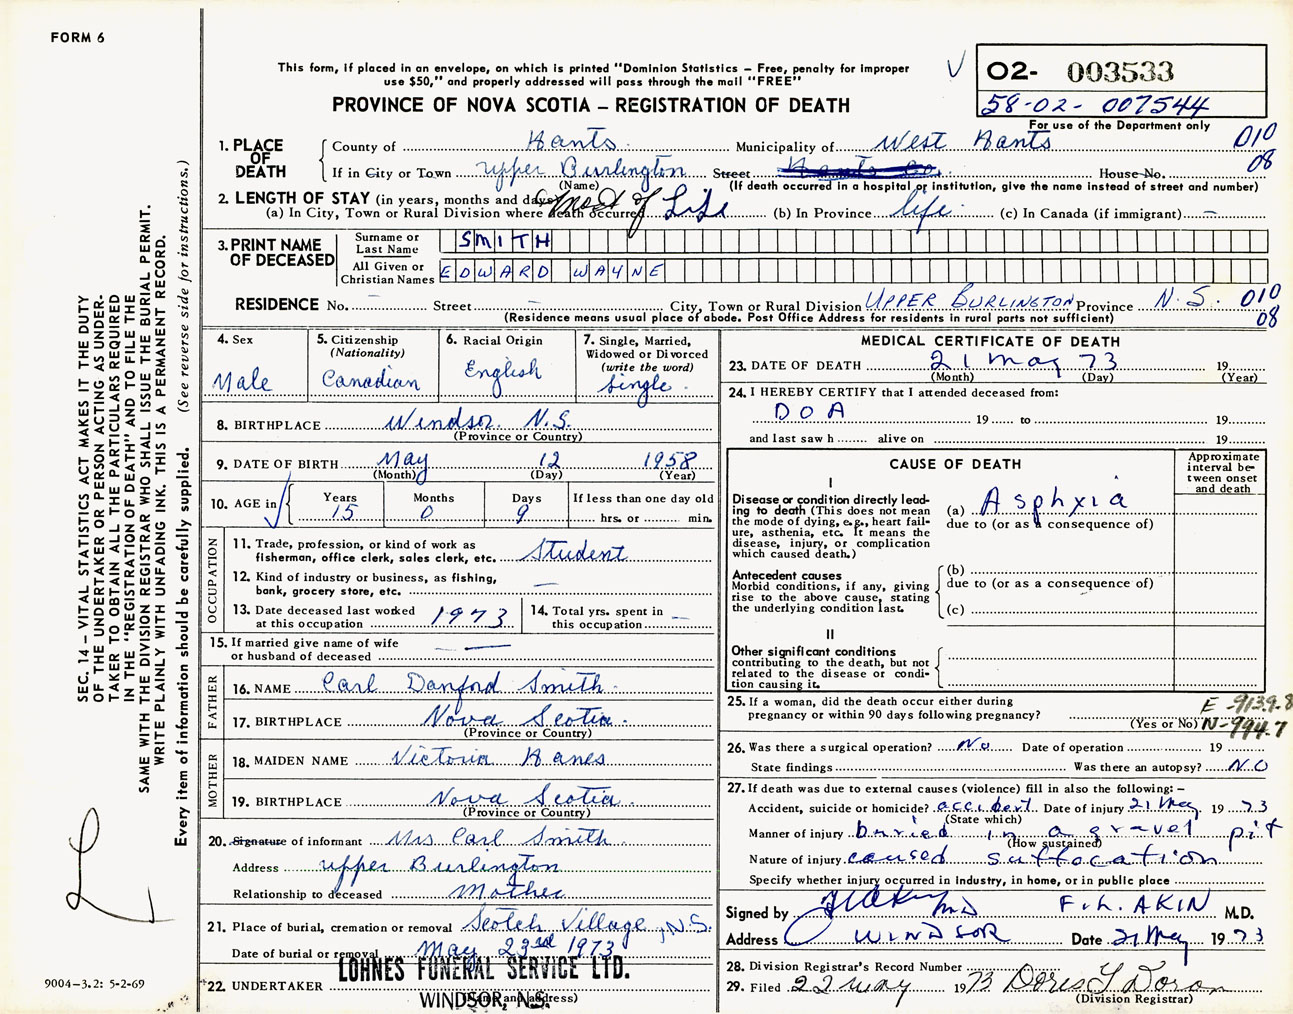 FORM 6
This form, if placed in an envelope, on which is printed "Dominion Statistics – Free, penalty for improper
use $50," and properly addressed will pass through the mail "FREE"
PROVINCE OF NOVA SCOTIA – REGISTRATION OF DEATH
02- 003533
58-02- 007544
For use of the Department only
1. PLACE OF DEATH County of Hants Municipality of West Hants 010
If in City or Town Upper Burlington Street Hants Co. House No. 08
(Name) (If death occurred in a hospital or institution, give the name instead of street and number)
2. LENGTH OF STAY (in years, months and days)
(a) In City, Town or Rural Division where death occurred Most of Life (b) In Province life (c) In Canada (if immigrant) –
3. PRINT NAME OF DECEASED
Surname or Last Name SMITH
All Given or Christian Names EDWARD WAYNE
RESIDENCE No. – Street – City, Town or Rural Division UPPER BURLINGTON Province N.S. 010
(Residence means usual place of abode. Post Office Address for residents in rural parts not sufficient) 08
4. Sex Male
5. Citizenship (Nationality) Canadian
6. Racial Origin English
7. Single, Married, Widowed or Divorced (write the word) Single
8. BIRTHPLACE Windsor N.S.
(Province or Country)
9. DATE OF BIRTH May 12 1958
(Month) (Day) (Year)
10. AGE in Years 15 Months 0 Days 9 If less than one day old hrs. or min.
OCCUPATION
11. Trade, profession, or kind of work as
fisherman, office clerk, sales clerk, etc. Student
12. Kind of industry or business, as fishing,
bank, grocery store, etc. –
13. Date deceased last worked
at this occupation 1973
14. Total yrs. spent in
this occupation –
15. If married give name of wife
or husband of deceased – –
FATHER
16. NAME Carl Danford Smith
17. BIRTHPLACE Nova Scotia
(Province or Country)
MOTHER
18. MAIDEN NAME Victoria Hanes
19. BIRTHPLACE Nova Scotia
(Province or Country)
20. Signature of informant Mrs Carl Smith
Address Upper Burlington
Relationship to deceased Mother
21. Place of burial, cremation or removal Scotch Village, N.S.
Date of burial or removal May 23rd 1973
22. UNDERTAKER LOHNES FUNERAL SERVICE LTD.
WINDSOR, N.S.
(Name and address)
MEDICAL CERTIFICATE OF DEATH
23. DATE OF DEATH 21 May 73 19
(Month) (Day) (Year)
24. I HEREBY CERTIFY that I attended deceased from:
DOA 19 to 19
and last saw h alive on 19
CAUSE OF DEATH
Approximate interval between onset and death
I
Disease or condition directly leading to death (This does not mean the mode of dying, e.g., heart failure, asthenia, etc. It means the disease, injury, or complication which caused death.)
(a) Asphxia
due to (or as a consequence of)
Antecedent causes
Morbid conditions, if any, giving rise to the above cause, stating the underlying condition last.
(b)
due to (or as a consequence of)
(c)
II
Other significant conditions
contributing to the death, but not related to the disease or condition causing it.
25. If a woman, did the death occur either during
pregnancy or within 90 days following pregnancy?
(Yes or No)
E-913.9.8
N-994.7
26. Was there a surgical operation? No Date of operation 19
State findings Was there an autopsy? NO
27. If death was due to external causes (violence) fill in also the following:–
Accident, suicide or homicide? accident Date of injury 21 May 1973
(State which)
Manner of injury buried in a gravel pit
(How sustained)
Nature of injury caused suffocation
Specify whether injury occurred in industry, in home, or in public place
Signed by F.L. AKIN M.D.
Address WINDSOR Date 21 May 1973
28. Division Registrar's Record Number
29. Filed 22 May 1973 Doris I Doran
(Division Registrar)
SEC. 14 – VITAL STATISTICS ACT MAKES IT THE DUTY
OF THE UNDERTAKER OR PERSON ACTING AS UNDER-
TAKER TO OBTAIN ALL THE PARTICULARS REQUIRED
IN THE "REGISTRATION OF DEATH" AND TO FILE THE
SAME WITH THE DIVISION REGISTRAR WHO SHALL ISSUE THE BURIAL PERMIT.
WRITE PLAINLY WITH UNFADING INK. THIS IS A PERMANENT RECORD.
Every item of information should be carefully supplied. (See reverse side for instructions.)
9004–3.2: 5-2-69